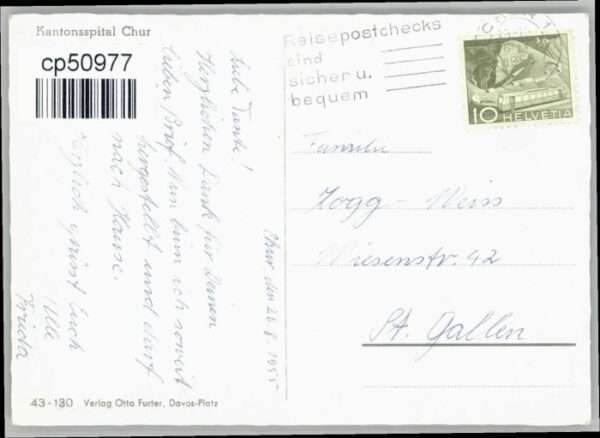 Kantonsspital Chur
cp50977
Chur, den 26. 8. 1955
Liebe Tante!
Herzlichen Dank für Deinen
lieben Brief. Nun bin ich soweit
hergestellt und darf
nach Hause.
Herzlich grüsst Euch
Alle
Frieda
43-130 Verlag Otto Furter, Davos-Platz
Reisepostchecks
sind
sicher u.
bequem
10 HELVETIA
Familie
Zogg - Weiss
Wiesenstr. 42
St. Gallen